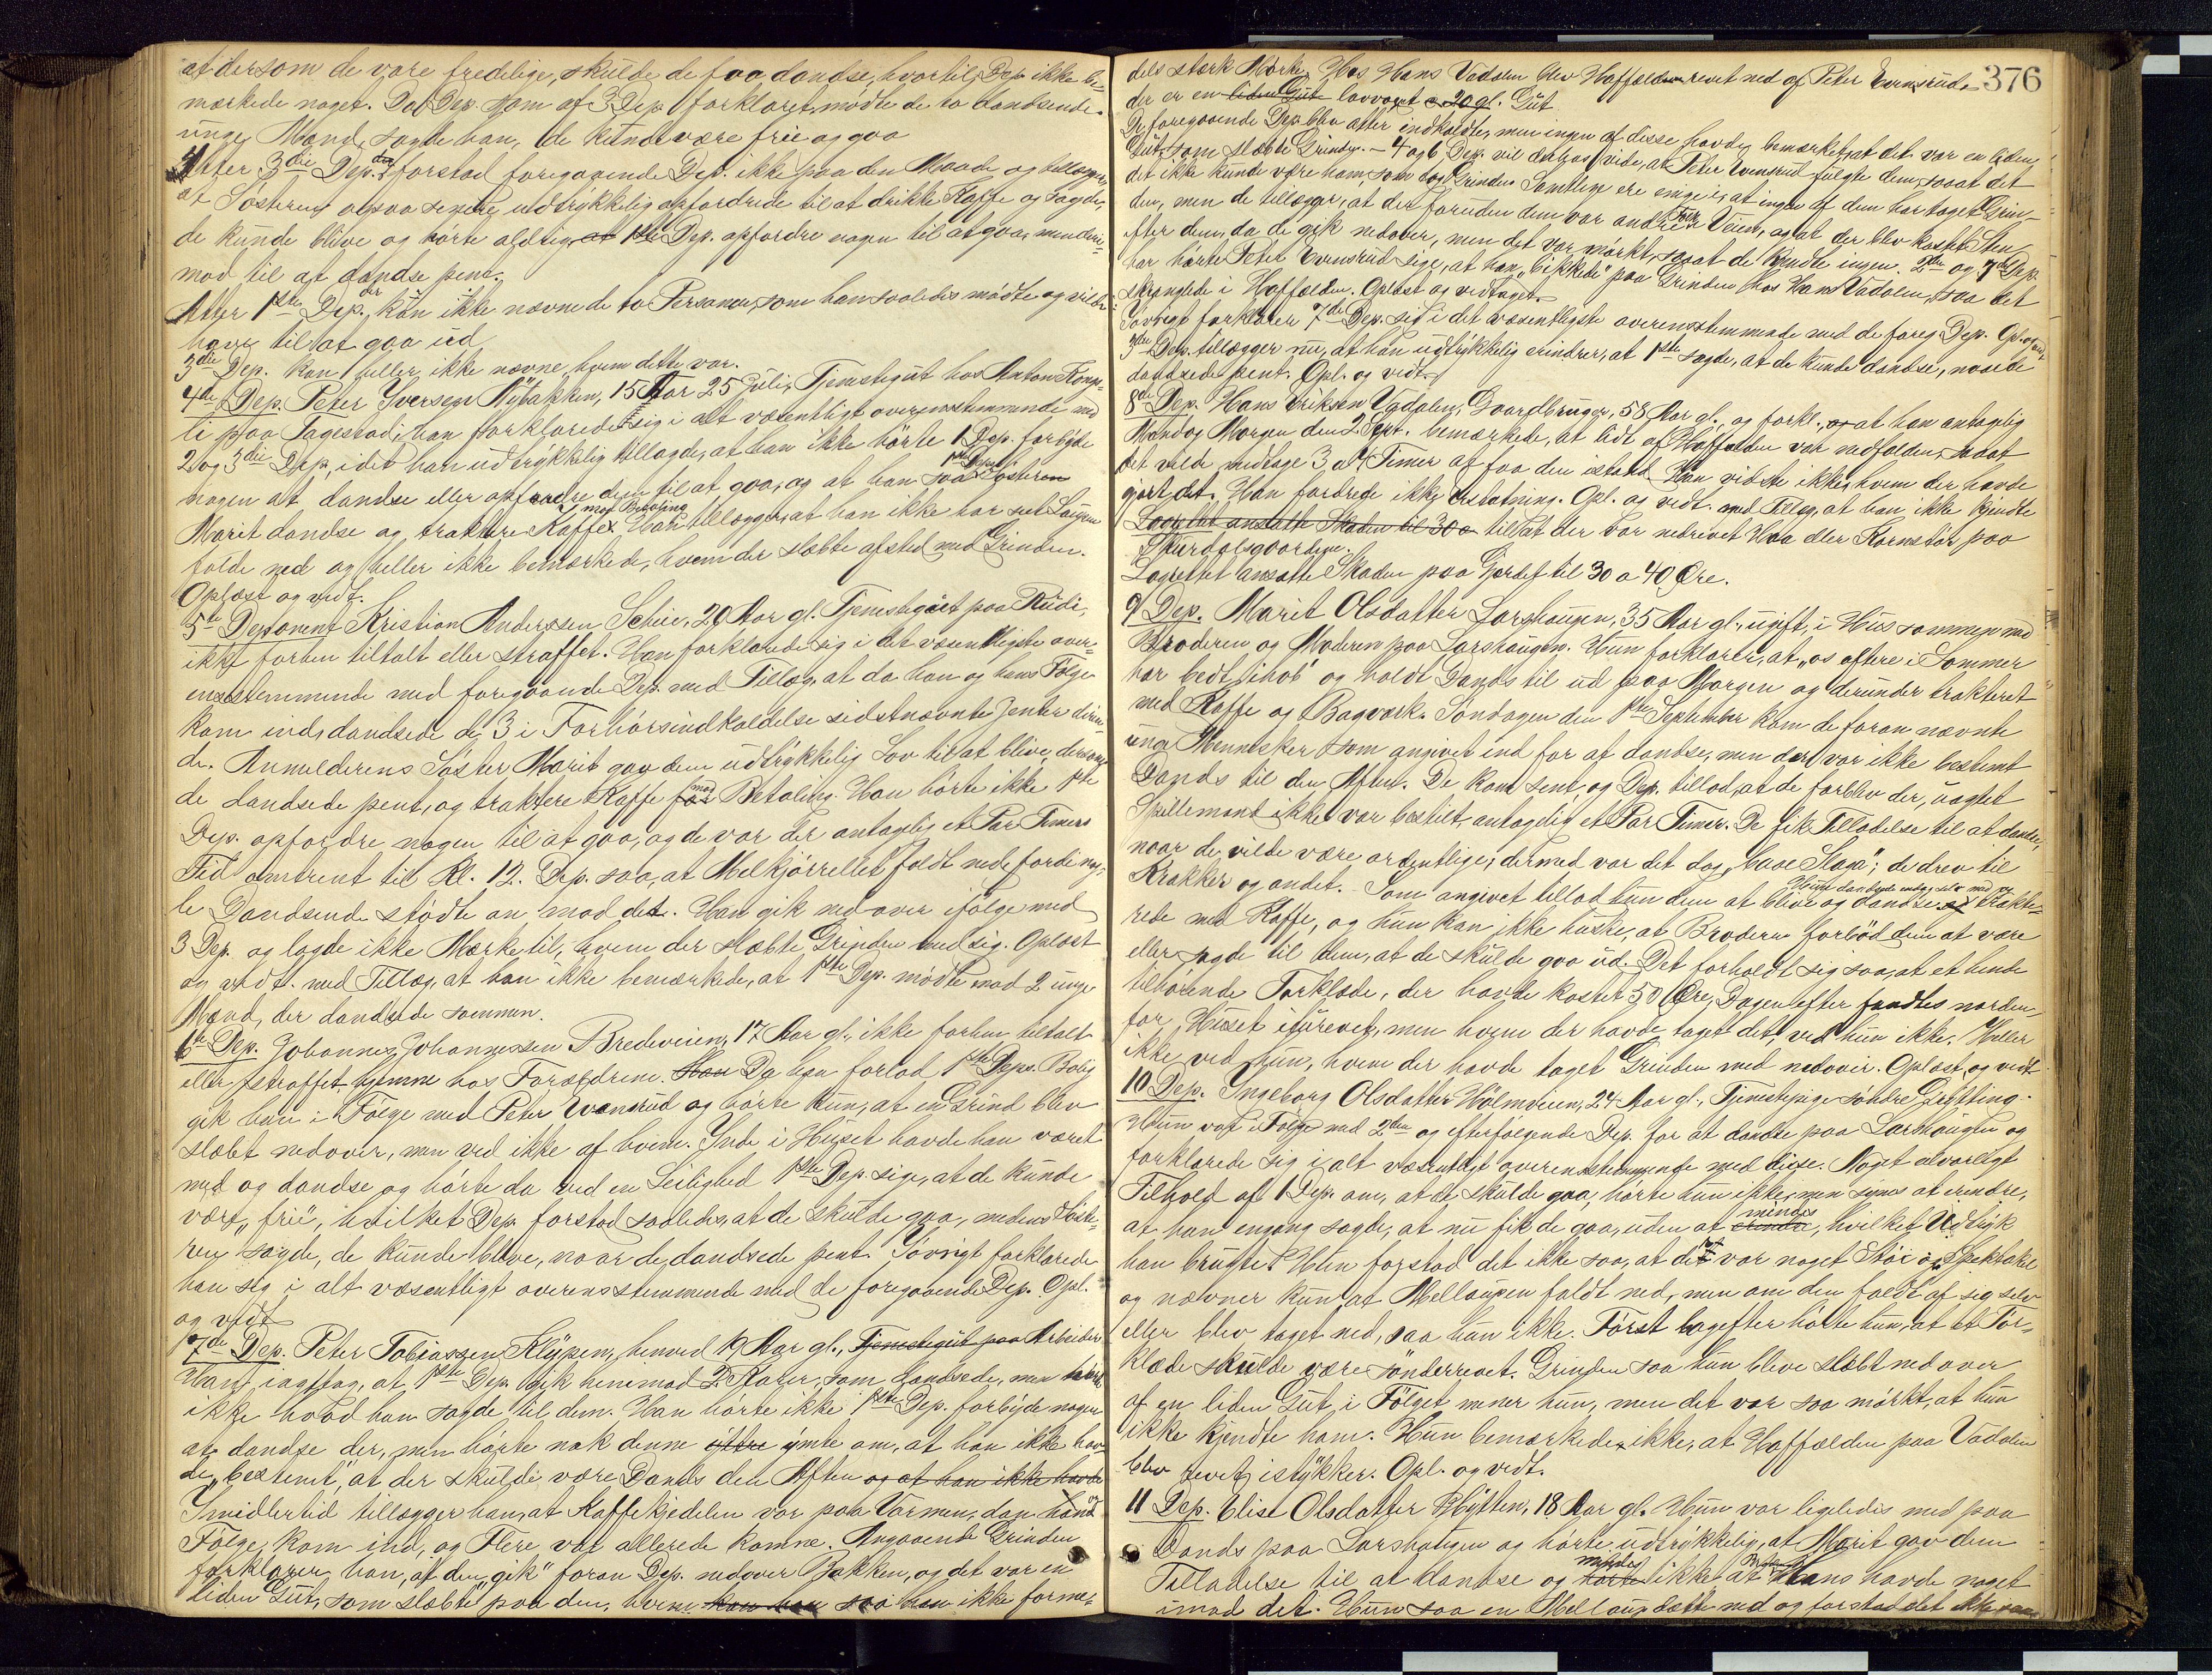 at dersom de vare fredelige, skulde de faa dandse, hvortil Dep. ikke be-
mærkede noget. Da Dep. som af 3 Dep. forklaret, mødte de to dandsende
unge Mænd, sagde han, de kunde være frie og gaa
Atter 3die Dep. forstod foregaaende Dep. ikke paa den Maade og tillægger,
at Søsteren ogsaa senere udtrykkelig opfordrede til at drikke Kaffe og sagde,
de kunde blive og hørte aldrig at 1ste Dep. opfordre nogen til at gaa, men der-
mod til at dandse pent.
Atter 1ste Dep., der kan ikke nævne de to Personer, som han saaledes mødte og vilde
have til at gaa ud
3die Dep. kan heller ikke nævne, hvem dette var.
4de Dep. Peter Iversen Nybakken, 15 Aar 25 Juli, Tjenestegut hos Anton Konge-
li paa Fagestad; han forklarede sig i alt væsentligt overensstemmende med
2 og 3die Dep., idet han udtrykkelig tillagde, at han ikke hørte 1 Dep. forbyde
nogen at dandse eller opfordre dem til at gaa, og at han saa 1ste Deps. Søsteren
Marit dandse og traktere Kaffe mod Betaling. Han tillægger, at han ikke har set Laugen
falde ned og heller ikke bemærkede, hvem der slæbte afsted med Grinden.
Oplæst og vedt.
5te Deponent Kristian Anderssen Scheie, 20 Aar gl. Tjenestegut paa Rudi,
ikke forhen tiltalt eller straffet. Han forklarede sig i det væsentligste over-
ensstemmende med foregaaende Dep. med Tillæg, at da han og hans Følge
kom ind, dandsede de 3 i Forhørsindkaldelse sidstnævnte Jenter derin-
de. Anmelderens Søster Marit gav dem udtrykkelig Lov til at blive, dersom
de dandsede pent, og traktere Kaffe for mod Betaling. Han hørte ikke 1ste
Dep. opfordre nogen til at gaa, og de var der antagelig et Par Timers
Tid omtrent til Kl. 12. Dep. saa, at Melkjørrellet faldt ned fordi nog-
le Dandsende stødte an mod det. Han gik nedover ifølge med
3 Dep. og lagde ikke Mærke til, hvem der slæbte Grinden med sig. Oplæst
og vedt. med Tillæg, at han ikke bemærkede, at 1ste Dep. mødte mod 2 unge
Mænd, der dandsede sammen.
6te Dep. Johannes Johannessen Bredeveien, 17 Aar gl., ikke forhen tiltalt
eller straffet, hjemme hos Forældrene. Han Da han forlod 1ste Deps. Bolig
gik han i Følge med Peter Evensrud og hørte kun, at en Grind blev
slæbt nedover, men ved ikke af hvem. Inde i Huset havde han været
med og dandse og hørte da ved en Leilighed 1ste Dep. sige, at de kunde
være „frie", hvilket Dep. forstod saaledes, at de skulde gaa, medens Søste-
ren sagde, de kunde blive, naar de dandsede pent. Iøvrigt forklarede
han sig i alt væsentligt overensstemmende med de foregaaende Dep. Opl.
og vedt.
7de Dep. Peter Tobiassen Klypen, henved 19 Aar gl., Tjenestegut paa Arbeider.
Han iagttog, at 1ste Dep. gik henimod 2 Karer, som dandsede, men hørte
ikke hvad han sagde til dem. Han hørte ikke 1ste Dep. forbyde nogen
at dandse der, men hørte nok denne yttre ymte om, at han ikke hav-
de „bestemt", at der skulde være Dands den Aften og at han ikke havde
Imidlertid tillægger han, at Kaffekjedelen var paa Varmen, da han og
Følge kom ind, og Flere var allerede komne. Angaaende Grinden
forklarer han, at den „gik" foran Dep. nedover Bakken, og det var en
liden Gut, som slæbte paa den, hvem kan han saa han ikke forme-
376
dels stærk Mørke. Hos Hans Vadalen blev Haffælden revet ned af Peter Evensrud,
der er en liden Gut lavvoxet c. 20 gl. Gut
De foregaaende Dep. blev atter indkaldte, men ingen af disse havde bemærket, at det var en liden
Gut, som slæbte Grinden. – 4 og 6 Dep. vil derhos vide, at Peter Evensrud fulgte dem, saaat det
det ikke kunde være ham, som tog Grinden. Samtlige ere enige i, at ingen af dem har taget Grin-
den, men de tillægger, at der foruden dem var andre Folk i Veien, og at der blev kastet Sten
efter dem, da de gik nedover, men det var mørkt, saaat de kjendte ingen. 2den og 7de Dep.
har hørte Peter Evensrud sige, at han „bikkede" paa Grinden hos Hans Vadalen, saa det
skranglede i Haffælden. Oplæst og vedtaget.
Iøvrigt forklarer 7de Dep. sig i det væsentligste overensstemmende med de foreg. Dep. Opl. og vedt.
3die Dep. tillægger nu, at han udtrykkelig erindrer, at 1ste sagde, at de kunde dandse, naar de
dandsede pent. Opl. og vedt.
8de Dep. Hans Eriksen Vadalen, Gaardbruger, 58 Aar gl., og forkl., at han antagelig
Mandag Morgen den 2. Sept. bemærkede, at lidt af Haffælden var nedfalden, saaat
det vilde medtage 3 a 4 Timer at faa den istand. Han vidste ikke, hvem der havde
gjort det. Han fordrede ikke Erstatning. Opl. og vedt. med Tillæg, at han ikke kjendte
Lagrettet ansatte Skaden til 30 a til, at der var nedrevet Haa eller Kornstør paa
Skurdalsgaardene.
Lagrettet ansatte Skaden paa Gjerdet til 30 a 40 Øre.
9 Dep. Marit Olsdatter Larshaugen, 35 Aar gl., ugift, i Hus sammen med
Broderen og Moderen paa Larshaugen. Hun forklarer, at „os oftere i Sommer
har bedt ihob" og holdt Dands til ud paa Morgen og derunder trakteret
med Kaffe og Bagværk. Søndagen den 1ste September kom de foran nævnte
unge Mennesker som angivet ind for at dandse, men der var ikke bestemt
Dands til den Aften. De kom sent, og Dep. tillod, at de forblev der, uagtet
Spillemand ikke var bestilt, antagelig et Par Timer. De fik Tilladelse til at dandse,
naar de vilde være ordentlige; dermed var det dog „base Staga"; de drev til
Krakker og andet. – Som angivet tillod hun dem at blive og dandse. Hun dandsede endog selv med og trakte-
rede med Kaffe, og hun kan ikke huske, at Broderen forbød dem at være
eller sagde til dem, at de skulde gaa ud. Det forholdt sig saa, at et hende
tilhørende Forklæde, der havde kostet 50 Øre, Dagen efter fandtes norden-
for Huset iturevet, men hvem der havde taget det, ved hun ikke. Heller
ikke ved hun, hvem der havde taget Grinden med nedover. Oplæst og vedt.
10 Dep. Ingeborg Olsdatter Holmveien, 24 Aar gl., Tjenestepige søndre Gretting.
Hun var i Følge med 2den og efterfølgende Dep. for at dandse paa Larshaugen og
forklarede sig i alt væsentligt overensstemmende med disse. Noget alvorligt
Tilhold af 1 Dep. om, at de skulde gaa, hørte hun ikke, men synes at erindre,
at han engang sagde, at nu fik de gaa, uden at erindre mindes, hvilket Udtryk
han brugte. Hun forstod det ikke saa, at der var noget Støi og Spektakel
og nævner kun, at Mellaupen faldt ned, men om den faldt af sig selv
eller blev taget ned, saa hun ikke. Først bagefter hørte hun, at et For-
klæde skulde være sønderrevet. Grinden saa hun bleve slæbt nedover
af en liden Gut i Følget mener hun, men det var saa mørkt, at hun
ikke kjendte ham. Hun bemærkede ikke, at Haffælden paa Vadalen
blev revet istykker. Opl. og vedt.
11 Dep. Elise Olsdatter Hytten, 18 Aar gl. Hun var ligeledes med paa
Dands paa Larshaugen og hørte udtrykkelig, at Marit gav dem
Tilladelse til at dandse og hørte mindes ikke at Hans havde noget
imod det. Hun saa en Mellaup datt ned og forstod det ikke saa